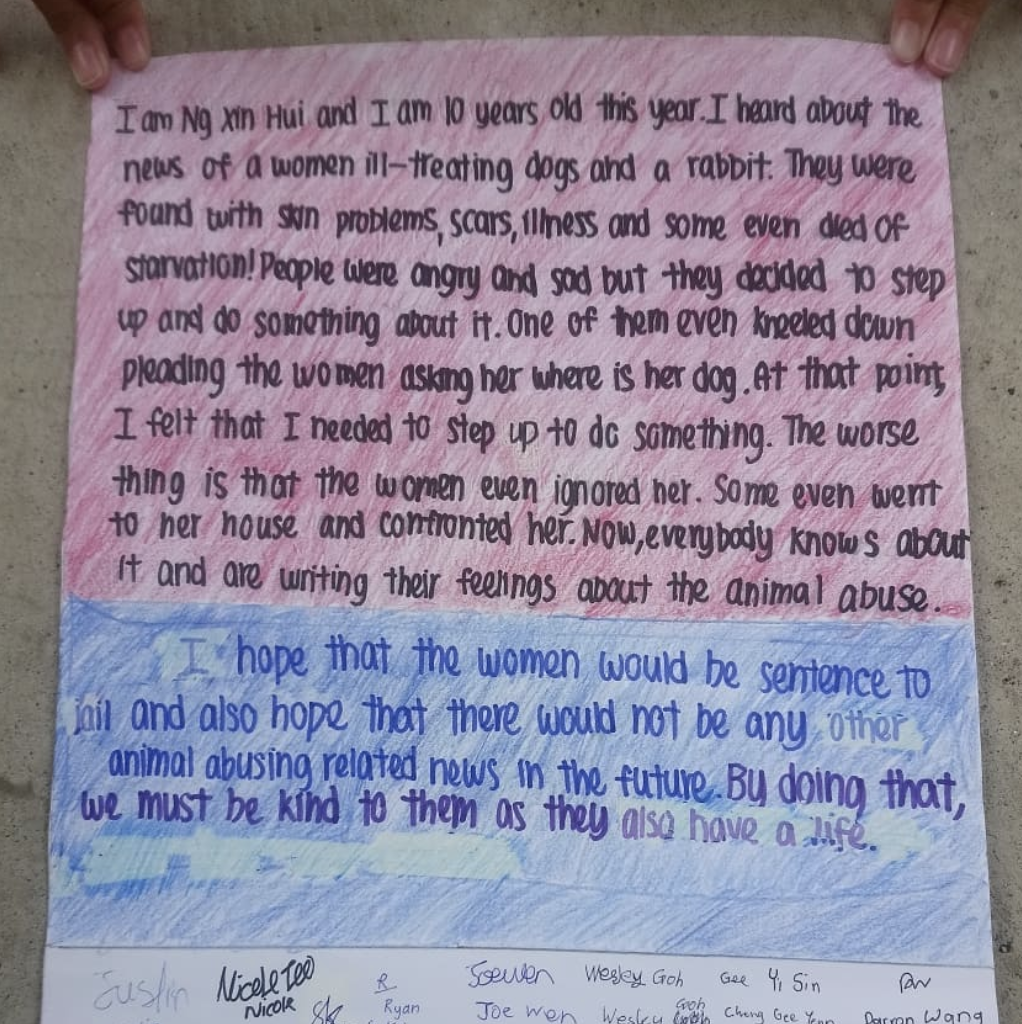 I am Ng xin Hui and I am 10 years old this year. I heard about the
news of a women ill-treating dogs and a rabbit. They were
found with skin problems, scars, illness and some even died of
starvation! People were angry and sad but they decided to step
up and do something about it. One of them even kneeled down
pleading the women asking her where is her dog. At that point,
I felt that I needed to step up to do something. The worse
thing is that the women even ignored her. Some even went
to her house and confronted her. Now, everybody knows about
it and are writing their feelings about the animal abuse.
I hope that the women would be sentence to
jail and also hope that there would not be any other
animal abusing related news in the future. By doing that,
we must be kind to them as they also have a life.
Justin Nicole Teo R Joewen Wesley Goh Gee Yi Sin
Nicole Ryan Joe Wen Wesley Goh Cheng Gee Wang